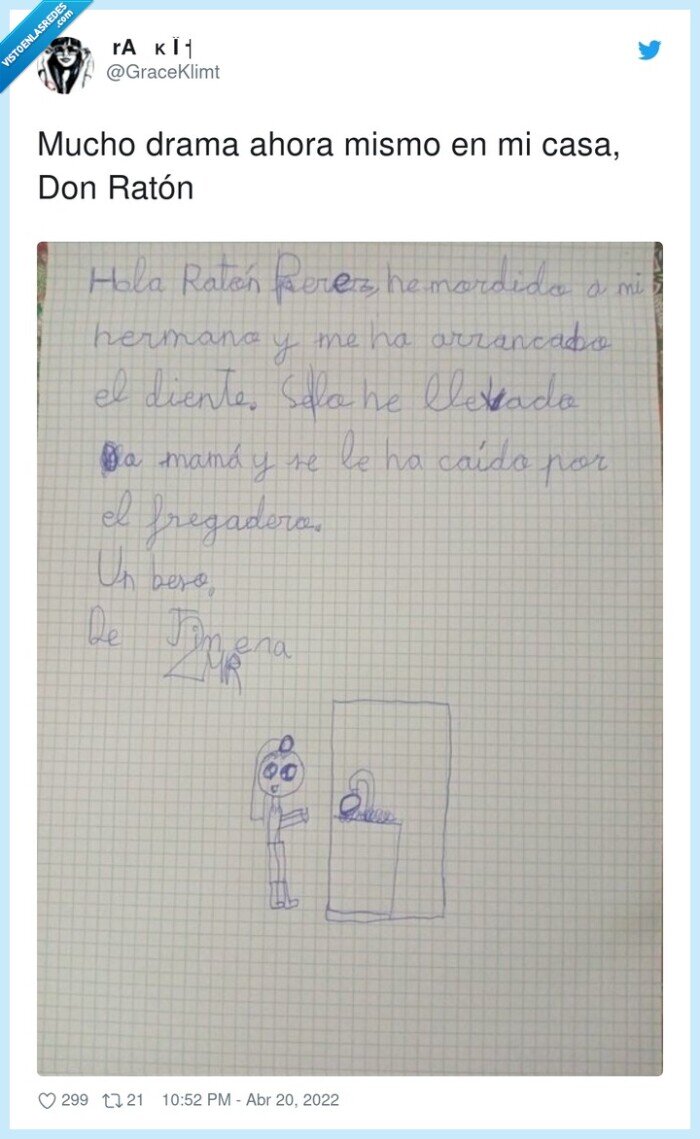 VISTOENLASREDES
.com
rA K Ï
@GraceKlimt
Mucho drama ahora mismo en mi casa,
Don Ratón
Hola Ratón Perez, he mordido a mi
hermano y me ha arrancado
el diente. Sélo he llevado
a mamá y se le ha caído por
el fregadero.
Un beso,
De Jimena
299 21 10:52 PM - Abr 20, 2022